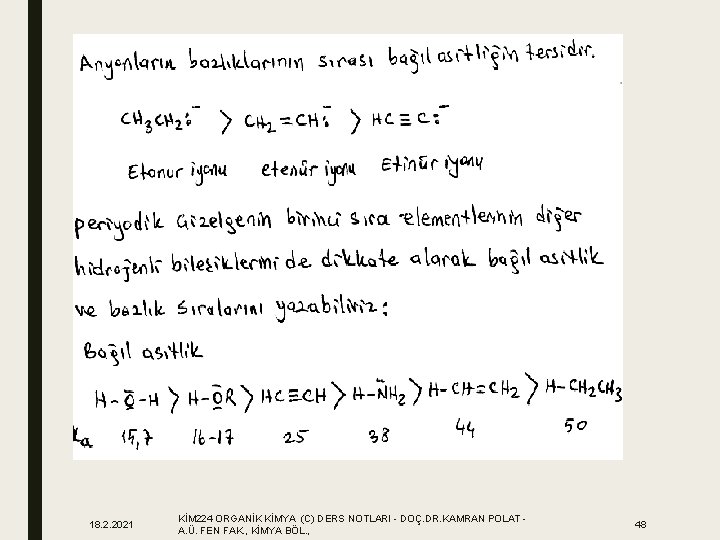 Anyonların bazlıklarının sırası bağıl asitliğin tersidir.
CH3CH2:⁻ > CH2=CH:⁻ > HC≡C:⁻
Etanür iyonu etenür iyonu Etinür iyonu
periyodik Çizelgenin birinci sıra elementlerinin diğer
hidrojenli bileşiklerini de dikkate alarak bağıl asitlik
ve bazlık sıralarını yazabiliriz:
Bağıl asitlik
H-O-H > H-OR > HC≡CH > H-NH2 > H-CH=CH2 > H-CH2CH3
Ka 15,7 16-17 25 38 44 50
18.2.2021
KİM224 ORGANİK KİMYA (C) DERS NOTLARI - DOÇ.DR.KAMRAN POLAT -
A.Ü. FEN FAK., KİMYA BÖL.,
48